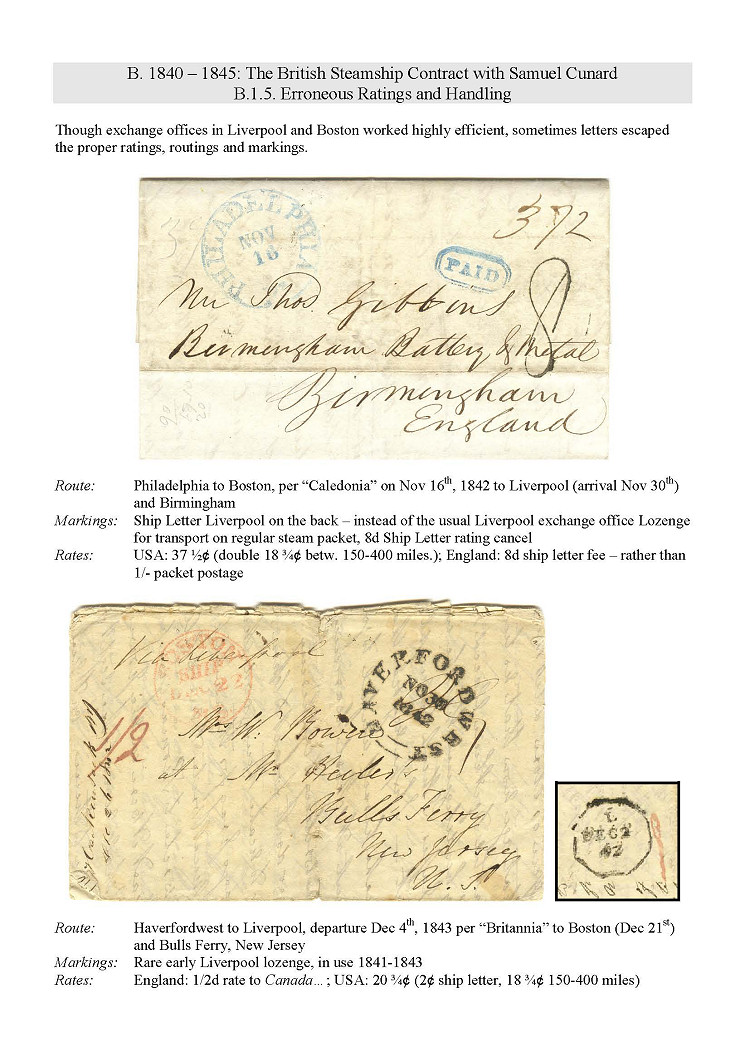 B. 1840 – 1845: The British Steamship Contract with Samuel Cunard
B.1.5. Erroneous Ratings and Handling
Though exchange offices in Liverpool and Boston worked highly efficient, sometimes letters escaped
the proper ratings, routings and markings.
PHILADELPHIA
NOV
16
37½
PAID
8
Mr Thos. Gibbons
Birmingham Battery & Metal
Birmingham
England
Route: Philadelphia to Boston, per “Caledonia” on Nov 16th, 1842 to Liverpool (arrival Nov 30th)
and Birmingham
Markings: Ship Letter Liverpool on the back – instead of the usual Liverpool exchange office Lozenge
for transport on regular steam packet, 8d Ship Letter rating cancel
Rates: USA: 37 ½¢ (double 18 ¾¢ betw. 150-400 miles.); England: 8d ship letter fee – rather than
1/- packet postage
Via Liverpool
BOSTON
SHIP
DEC 22
HAVERFORDWEST
NO 30
1842
1/2
Mrs W. Bowen
at Mr
Bulls Ferry
New Jersey
U. S.
L
DE 2
42
Route: Haverfordwest to Liverpool, departure Dec 4th, 1843 per “Britannia” to Boston (Dec 21st)
and Bulls Ferry, New Jersey
Markings: Rare early Liverpool lozenge, in use 1841-1843
Rates: England: 1/2d rate to Canada... ; USA: 20 ¾¢ (2¢ ship letter, 18 ¾¢ 150-400 miles)